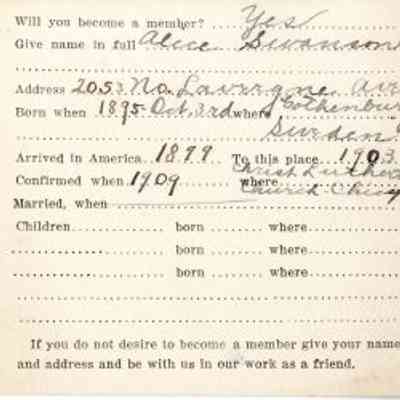 Will you become a member? Yes
Give name in full Alice Swanson
Address 2053 No. Lavergne Ave
Born when 1895 Oct. 3rd where Gothenbur
Sweden
Arrived in America 1899 To this place 1903
Christ Luthera
Confirmed when 1909 where Church Chicag
Married, when
Children born where
born where
born where
If you do not desire to become a member give your name
and address and be with us in our work as a friend.